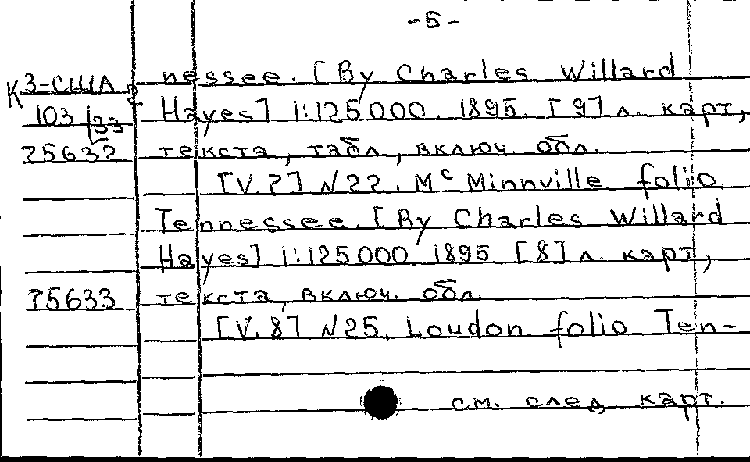 -5-
К3-США nessee. [By Charles Willard
103/33 Hayes] 1:125000. 1895. [9] л. карт,
75632 текста, табл, включ обл.
[V.7] N22. Mc Minnville folio
Tennessee. [By Charles Willard
Hayes] 1:125000 1895 [8] л. карт,
75633 текста, включ. обл
[V.8] N25. Loudon folio Ten-
см. след. карт.